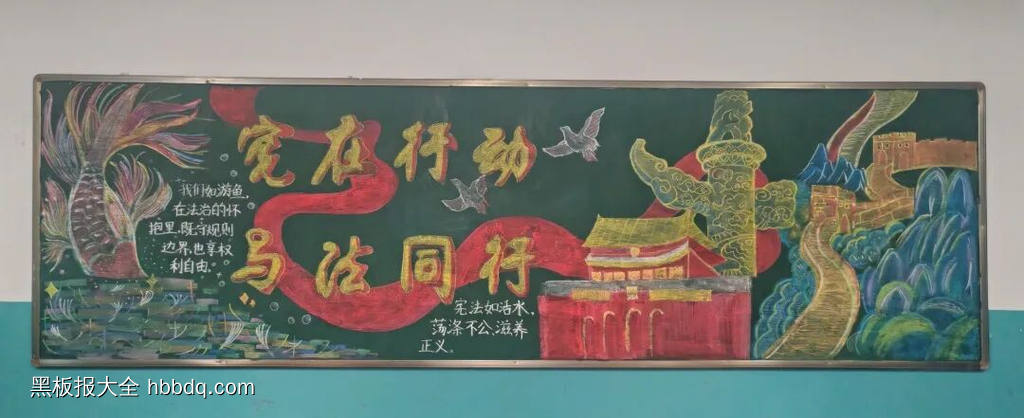 宪在行动
与法同行
我们如游鱼，
在法治的怀
抱里，既守规则
边界，也享权
利自由。
宪法如活水，
荡涤不公，滋养
正义。
黑板报大全 hbbdq.com